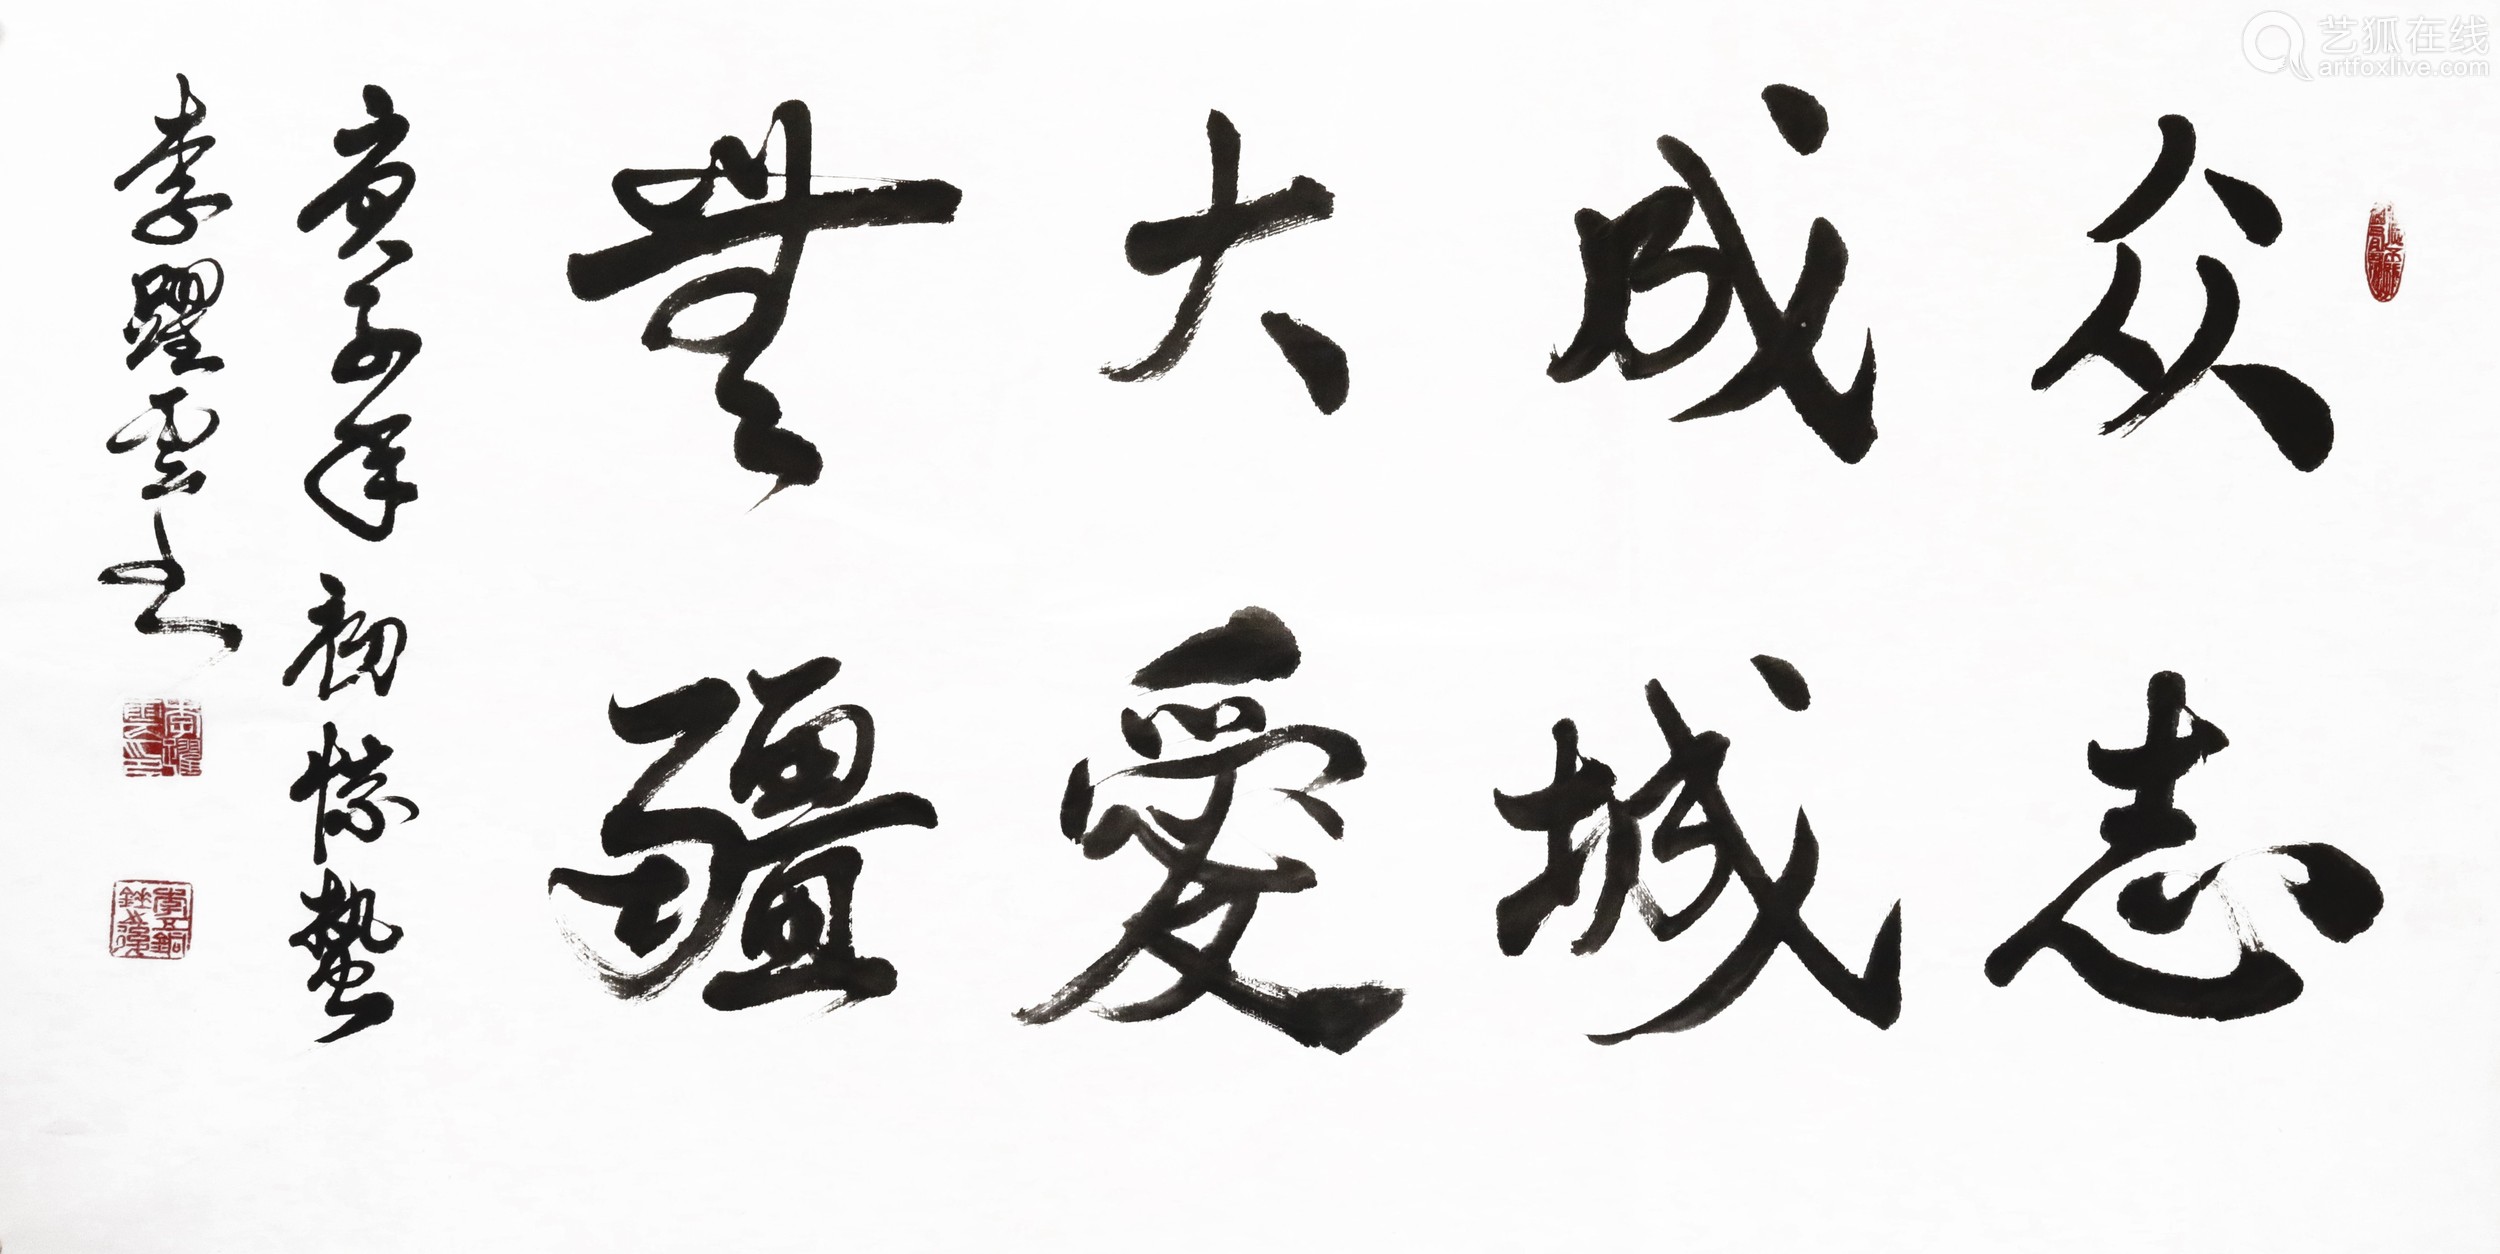 众志
成城
大愛
無疆
庚子年初惊蟄
李躍雲书
艺狐在线
artfoxlive.com